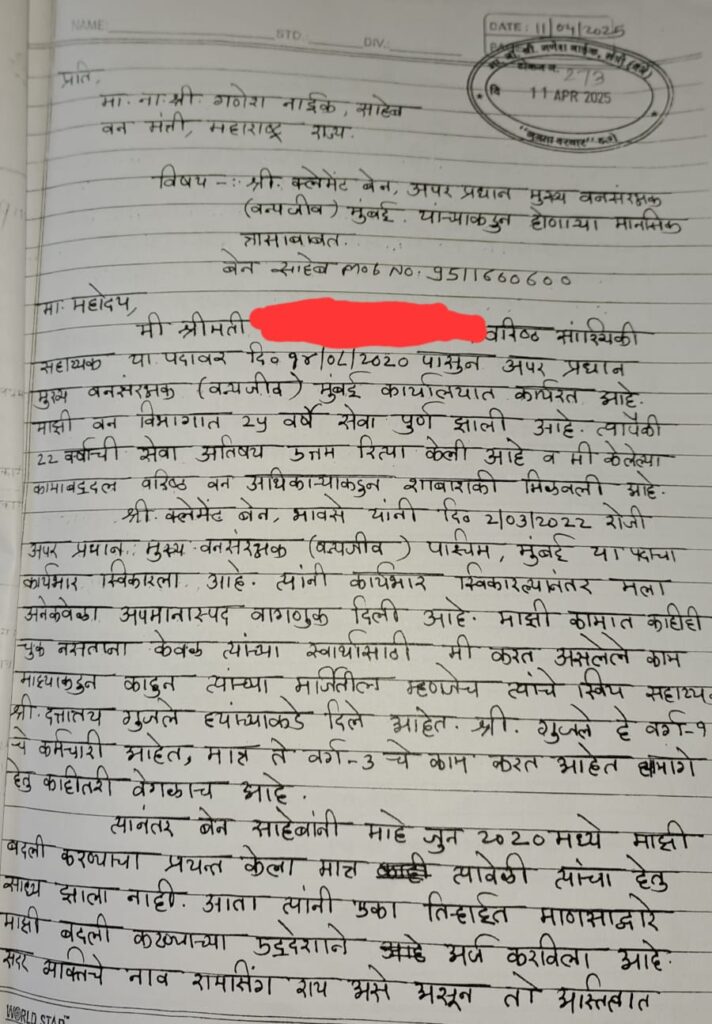 NAME:
STD.:
DIV.:
DATE: 11/04/2025
273
11 APR 2025
प्रति,
मा. ना. श्री. गणेश नाईक, साहेब
वन मंत्री, महाराष्ट्र राज्य.
विषय -: श्री. क्लेमेंट बेन, अपर प्रधान मुख्य वनसंरक्षक
(वन्यजीव) मुंबई. यांच्याकडुन होणाऱ्या मानसिक
त्रासाबाबत.
बेन साहेब mob No: 9511660600
मा. महोदय,
मी श्रीमती वरिष्ठ सांख्यिकी
सहाय्यक या पदावर दि० १४/०८/2020 पासुन अपर प्रधान
मुख्य वनसंरक्षक (वन्यजीव) मुंबई कार्यालयात कार्यरत आहे.
माझी वन विभागात 25 वर्षे सेवा पुर्ण झाली आहे. त्यापैकी
22 वर्षाची सेवा अतिषय उत्तम रित्या केली आहे व मी केलेल्या
कामाबद्दल वरिष्ठ वन अधिकाऱ्याकडुन शाबाशकी मिळवली आहे.
श्री. क्लेमेंट बेन, भावसे यांनी दि० 2/03/2022 रोजी
अपर प्रधान मुख्य वनसंरक्षक (वन्यजीव) पश्चिम, मुंबई या पदाचा
कार्यभार स्विकारला आहे. त्यांनी कार्यभार स्विकारल्यानंतर मला
अनेकवेळा अपमानास्पद वागणुक दिली आहे. माझी कामात काहीही
चुक नसताना केवळ त्यांच्या स्वार्थासाठी मी करत असलेले काम
माझ्याकडुन काढुन त्यांच्या मर्जितील म्हणजेच त्यांचे स्विय सहाय्यक
श्री. दत्तात्रय गुजले ह्यांच्याकडे दिले आहेत. श्री. गुजले हे वर्ग-१
चे कर्मचारी आहेत, मात्र ते वर्ग-3 चे काम करत आहेत मागे
हेतु काहीतरी वेगळाच आहे.
त्यानंतर बेन साहेबांनी माहे जुन 2020 मध्ये माझी
बदली करण्याचा प्रयत्न केला मात्र त्यावेळी त्यांचा हेतु
साध्य झाला नाही. आता त्यांनी एका तिऱ्हाईत माणसाद्वारे
माझी बदली करण्याच्या उद्देशाने अर्ज करविला आहे.
सदर व्यक्तिचे नाव रामसिंग राय असे असून तो अस्तित्वात
WORLD STAR